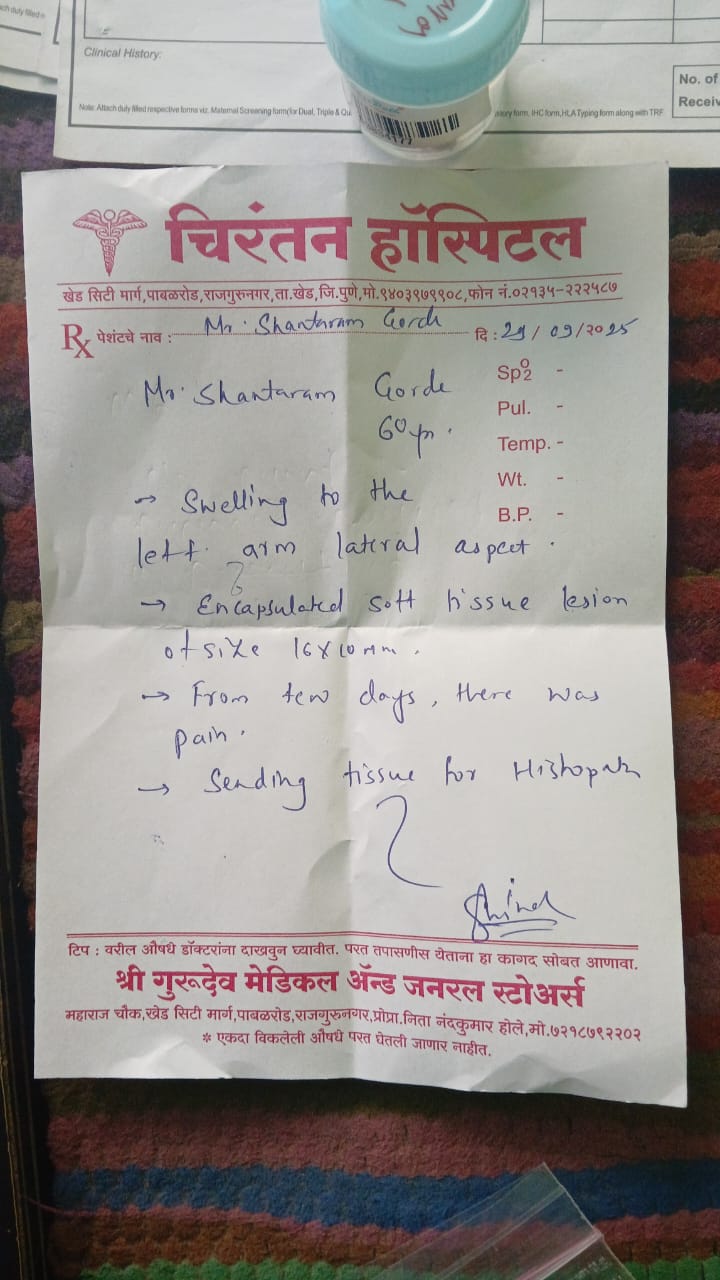 ach duly filled
Clinical History:
No. of
Receiv
Note: Attach duly filled respective forms viz. Maternal Screening form(for Dual, Triple & Qu
story form, IHC form,HLA Typing form along with TRF
चिरंतन हॉस्पिटल
खेड सिटी मार्ग,पाबळरोड,राजगुरुनगर,ता.खेड,जि.पुणे,मो.९४०३९७९९०८,फोन नं.०२१३५-२२२५८७
Rx पेशंटचे नाव : Mr. Shantaram Gorde दि : 29/09/२०25
Mr. Shantaram Gorde
60 yr.
SpO2 -
Pul. -
Temp. -
Wt. -
B.P. -
→ Swelling to the
left. arm lateral aspect.
?
→ Encapsulated soft tissue lesion
of size 16 X 10 mm.
→ From few days, there was
pain.
→ Sending tissue for Histopath
टिप : वरील औषधे डॉक्टरांना दाखवुन घ्यावीत. परत तपासणीस येताना हा कागद सोबत आणावा.
श्री गुरूदेव मेडिकल ॲन्ड जनरल स्टोअर्स
महाराज चौक,खेड सिटी मार्ग,पाबळरोड,राजगुरुनगर,प्रोप्रा.निता नंदकुमार होले,मो.७२१८७९२२०२
* एकदा विकलेली औषधे परत घेतली जाणार नाहीत.